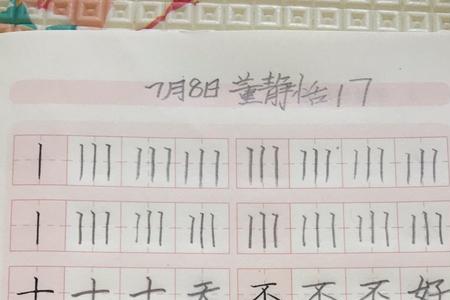 7月8日 董静怡 17
丨 丨丨丨 丨丨丨 丨丨丨 丨丨丨 丨丨丨 丨丨丨 丨丨丨
丨 丨丨丨 丨丨丨 丨丨丨 丨丨丨 丨丨丨 丨丨丨 丨丨丨
十 十 十 天 不 不 不 好